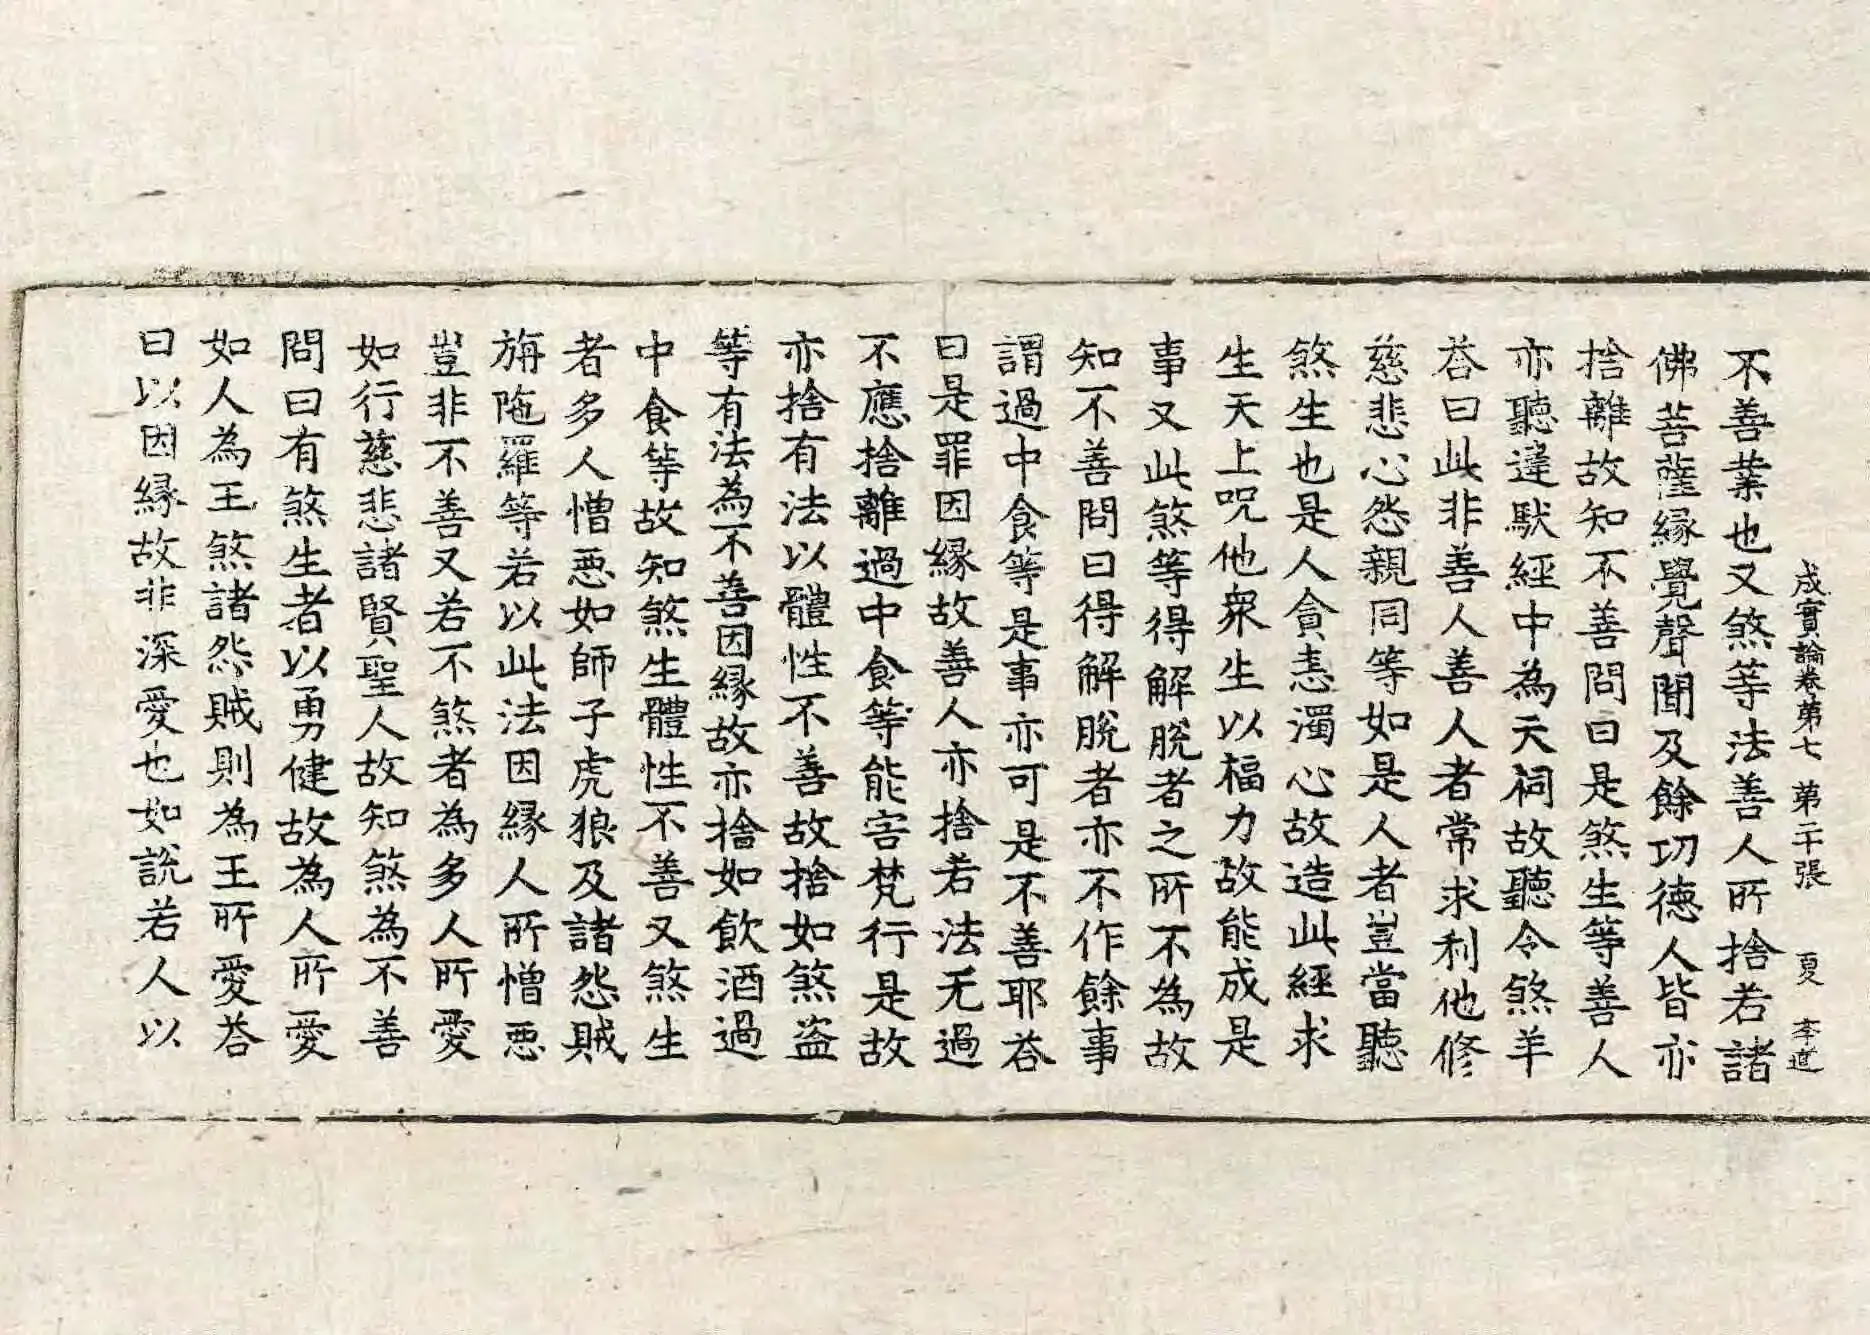 成實論卷第七　第二十張　夏　李道
不善業也又煞等法善人所捨若諸
佛菩薩緣覺聲聞及餘功德人皆亦
捨離故知不善問曰是煞生等善人
亦聽違馱經中為天祠故聽令煞羊
荅曰此非善人善人者常求利他修
慈悲心怨親同等如是人者豈當聽
煞生也是人貪恚濁心故造此經求
生天上呪他衆生以福力故能成是
事又此煞等得解脫者之所不為故
知不善問曰得解脫者亦不作餘事
謂過中食等是事亦可是不善耶荅
曰是罪因緣故善人亦捨若法无過
不應捨離過中食等能害梵行是故
亦捨有法以體性不善故捨如煞盜
等有法為不善因緣故亦捨如飲酒過
中食等故知煞生體性不善又煞生
者多人憎惡如師子虎狼及諸怨賊
旃陁羅等若以此法因緣人所憎惡
豈非不善又若不煞者為多人所愛
如行慈悲諸賢聖人故知煞為不善
問曰有煞生者以勇健故為人所愛
如人為王煞諸怨賊則為王所愛荅
曰以因緣故非深愛也如說若人以